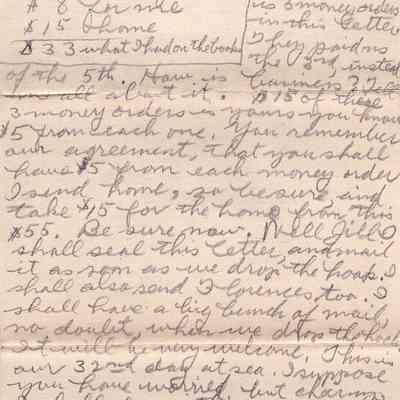 $ 8 for me
$15 home
$33 what I had on the books
is 3 money orders
in this letter
They paid us
the 3rd, insted
of the 5th. How is business? Tell
me all about it. $15 of these
3 money orders is yours you know
$5 from each one. You remember
our agreement, that you shall
have $5 from each money order
I send home, so be sure, and
take $15 for the home from this
$55. Be sure now. Well Jill I
shall seal this letter, and mail
it as soon as we drop the hook. I
shall also send Florences, too. I
shall have a big bunch of mail,
no doubt, when we drop the hook
It will be very welcome. This is
our 32nd day at sea. I suppose
you have worried, but